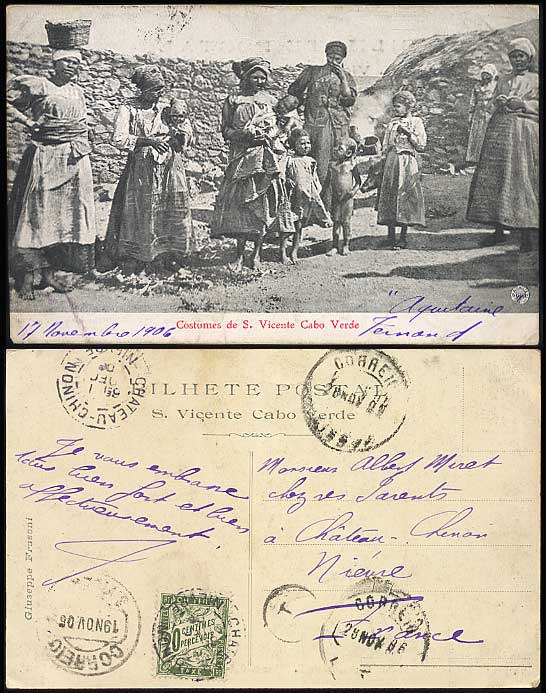 17 Novembre 1906
Costumes de S. Vicente Cabo Verde
"Aquitaine"
Fernand
BILHETE POSTAL
S. Vicente Cabo Verde
CHATEAU-CHINON
NIEVRE
CORREIO
28 NOV 06
Je vous embrasse
tous bien fort et bien
affectueusement.
Monsieur Albert Muret
chez ses Parents
à Château-Chinon
Nièvre
France
Giuseppe Frusoni
19 NOV. 06
CORREIO
20 CENTIMES
À PERCEVOIR
T
CORREIO
28 NOV 06